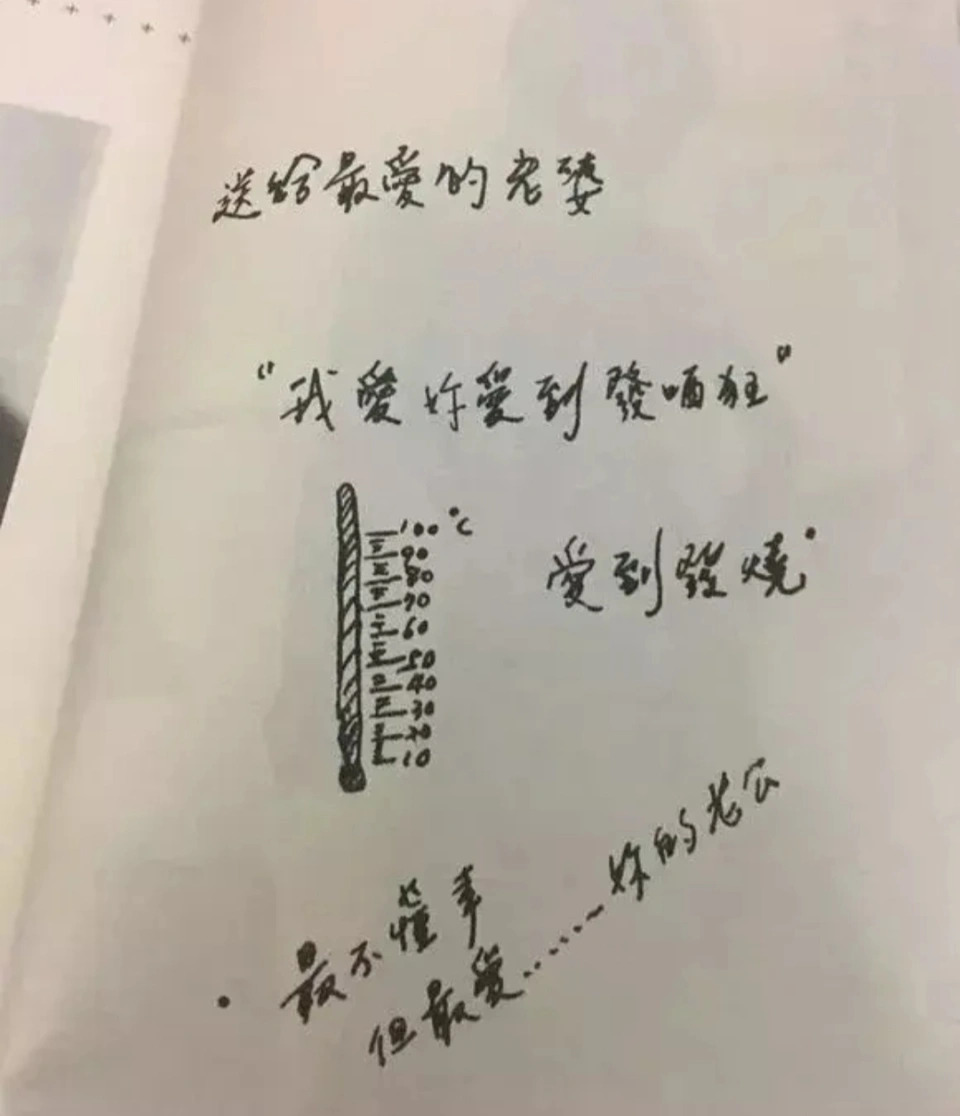 送給最愛的老婆
"我愛妳愛到發哂狂"
100°C
90
80
70
60
50
40
30
20
10
愛到發燒
最不懂事
但最愛......妳的老公